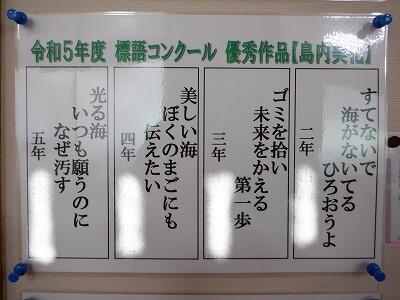 令和5年度 標語コンクール 優秀作品【島内美化】
すてないで
海がないてる
ひろおうよ
二年
ゴミを拾い
未来をかえる
第一歩
三年
美しい海
ぼくのまごにも
伝えたい
四年
光る海
いつも願うのに
なぜ汚す
五年